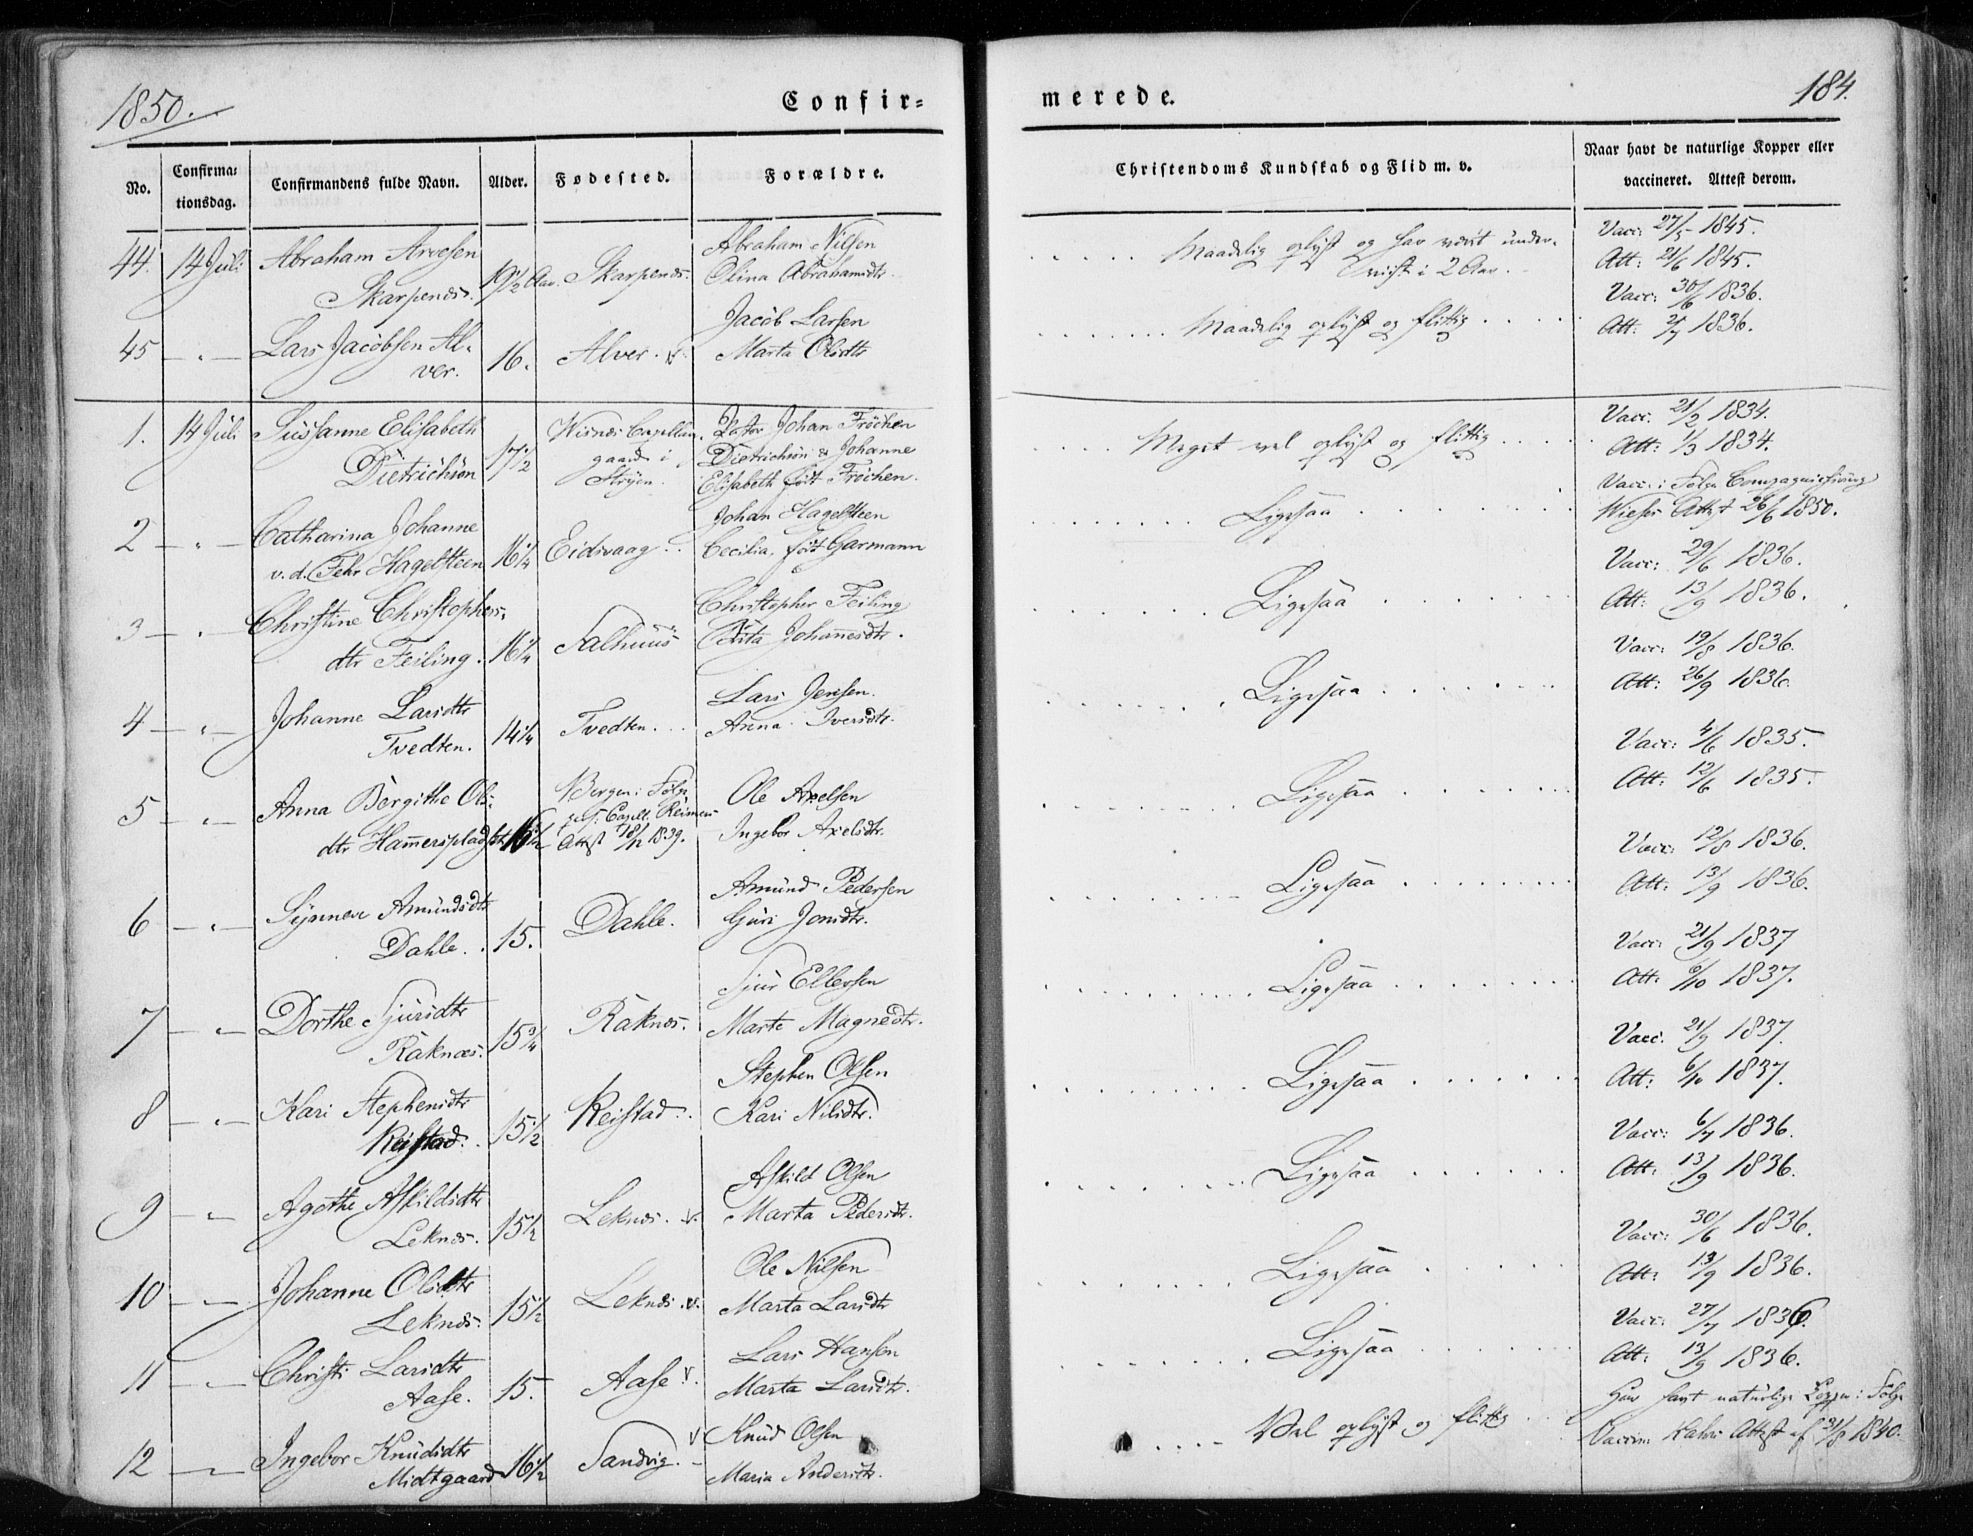 1850.
Confir-
merede.
184.
No.
Confirma-
tionsdag.
Confirmandens fulde Navn.
Alder.
Fødested.
Forældre.
Christendoms Kundskab og Flid m. v.
Naar havt de naturlige Kopper eller
vaccineret. Attest derom.
44. 14 Juli Abraham Arvesen
Skarpenæs.
19 1/2 Aar. Skarpenæs.
Abraham Nilsen
Olina Abrahamsdtr.
Maadelig oplyst og har været under-
viist i 2 Aar.
Vacc: 27/5 1845.
Att: 21/6 1845.
45 - " - Lars Jacobsen Al-
ver.
16. Alver. v.
Jacob Larsen
Marta Olsdtr
Maadelig oplyst og flittig
Vacc: 30/6 1836.
Att: 2/7 1836.
1. 14 Juli Susanne Elisabeth
Dietrichson
17 1/2
Wisnæs Capellan-
gaard i
Stryen.
Pastor Johan Fröchen
Dietrichson & Johanne
Elisabeth født Fröchen.
Meget vel oplyst og flittig
Vacc. 21/2 1834.
Att: 1/3 1834.
2 - " - Catharina Johanne
v. d. Fehr Hagelsteen
16 1/4 Eidsvaag
Johan Hagelsteen
Cecilia, født Garmann
Ligesaa
Vacc: i Følge Compagniechirurg
Wieses Attest 26/6 1850.
3 - " - Christine Christophers-
dtr Feiling.
16 1/4 Salhuus
Christopher Feiling
Johannesdtr.
Ligesaa
Vacc: 29/6 1836.
Att: 13/9 1836.
4 - " - Johanne Larsdtr
Tvedten.
14 1/4 Tvedten.
Lars Jensen.
Anna Iversdtr.
Ligesaa
Vacc: 19/8 1836.
Att: 26/9 1836.
5 - " - Anna Bergithe Ols-
dtr Hammerspladset
16 1/2
Bergen i Følge
Capell. Reimers
Attest 18/12 1839.
Ole Axelsen
Ingebor Axelsdtr.
Ligesaa
Vacc: 4/6 1835.
Att: 12/6 1835.
6 - " - Synneve Amundsdtr
Dahle.
15. Dahle.
Amund Pedersen
Guri Jonsdtr.
Ligesaa
Vacc: 12/8 1836.
Att: 13/9 1836.
7 - " - Dorthe Sjursdtr
Raknæs.
15 3/4 Raknæs.
Sjur Ellersen
Marte Magnedtr.
Ligesaa
Vacc: 21/9 1837
Att: 6/10 1837.
8 - " - Kari Stephensdtr
Reistad.
15 1/2 Reistad.
Stephen Olsen
Kari Nilsdtr.
Ligesaa
Vacc. 21/9 1837.
Att: 6/10 1837.
9 - " - Agothe Askildsdtr
Leknæs.
15 1/2 Leknæs. v.
Askild Olsen
Marta Pedersdtr.
Ligesaa
Vacc: 6/7 1836.
Att: 13/9 1836.
10 - " - Johanne Olsdtr
Leknæs.
15 1/2 Leknæs. v.
Ole Nilsen
Marta Larsdtr
Ligesaa
Vacc: 30/6 1836.
Att: 13/9 1836.
11 - " - Christi Larsdtr
Aase.
15. Aase v.
Lars Hansen
Marta Larsdtr.
Ligesaa
Vacc: 27/7 1836.
Att: 13/9 1836.
12 - " - Ingebor Knudsdtr
Midtgaard
16 1/2 Sandvig.
v Knud Olsen
Maria Andersdtr.
Vel oplyst og flittig
Har havt naturlige Kopper i Følge
Vaccin. Kahrs Attest af 31/8 1840.